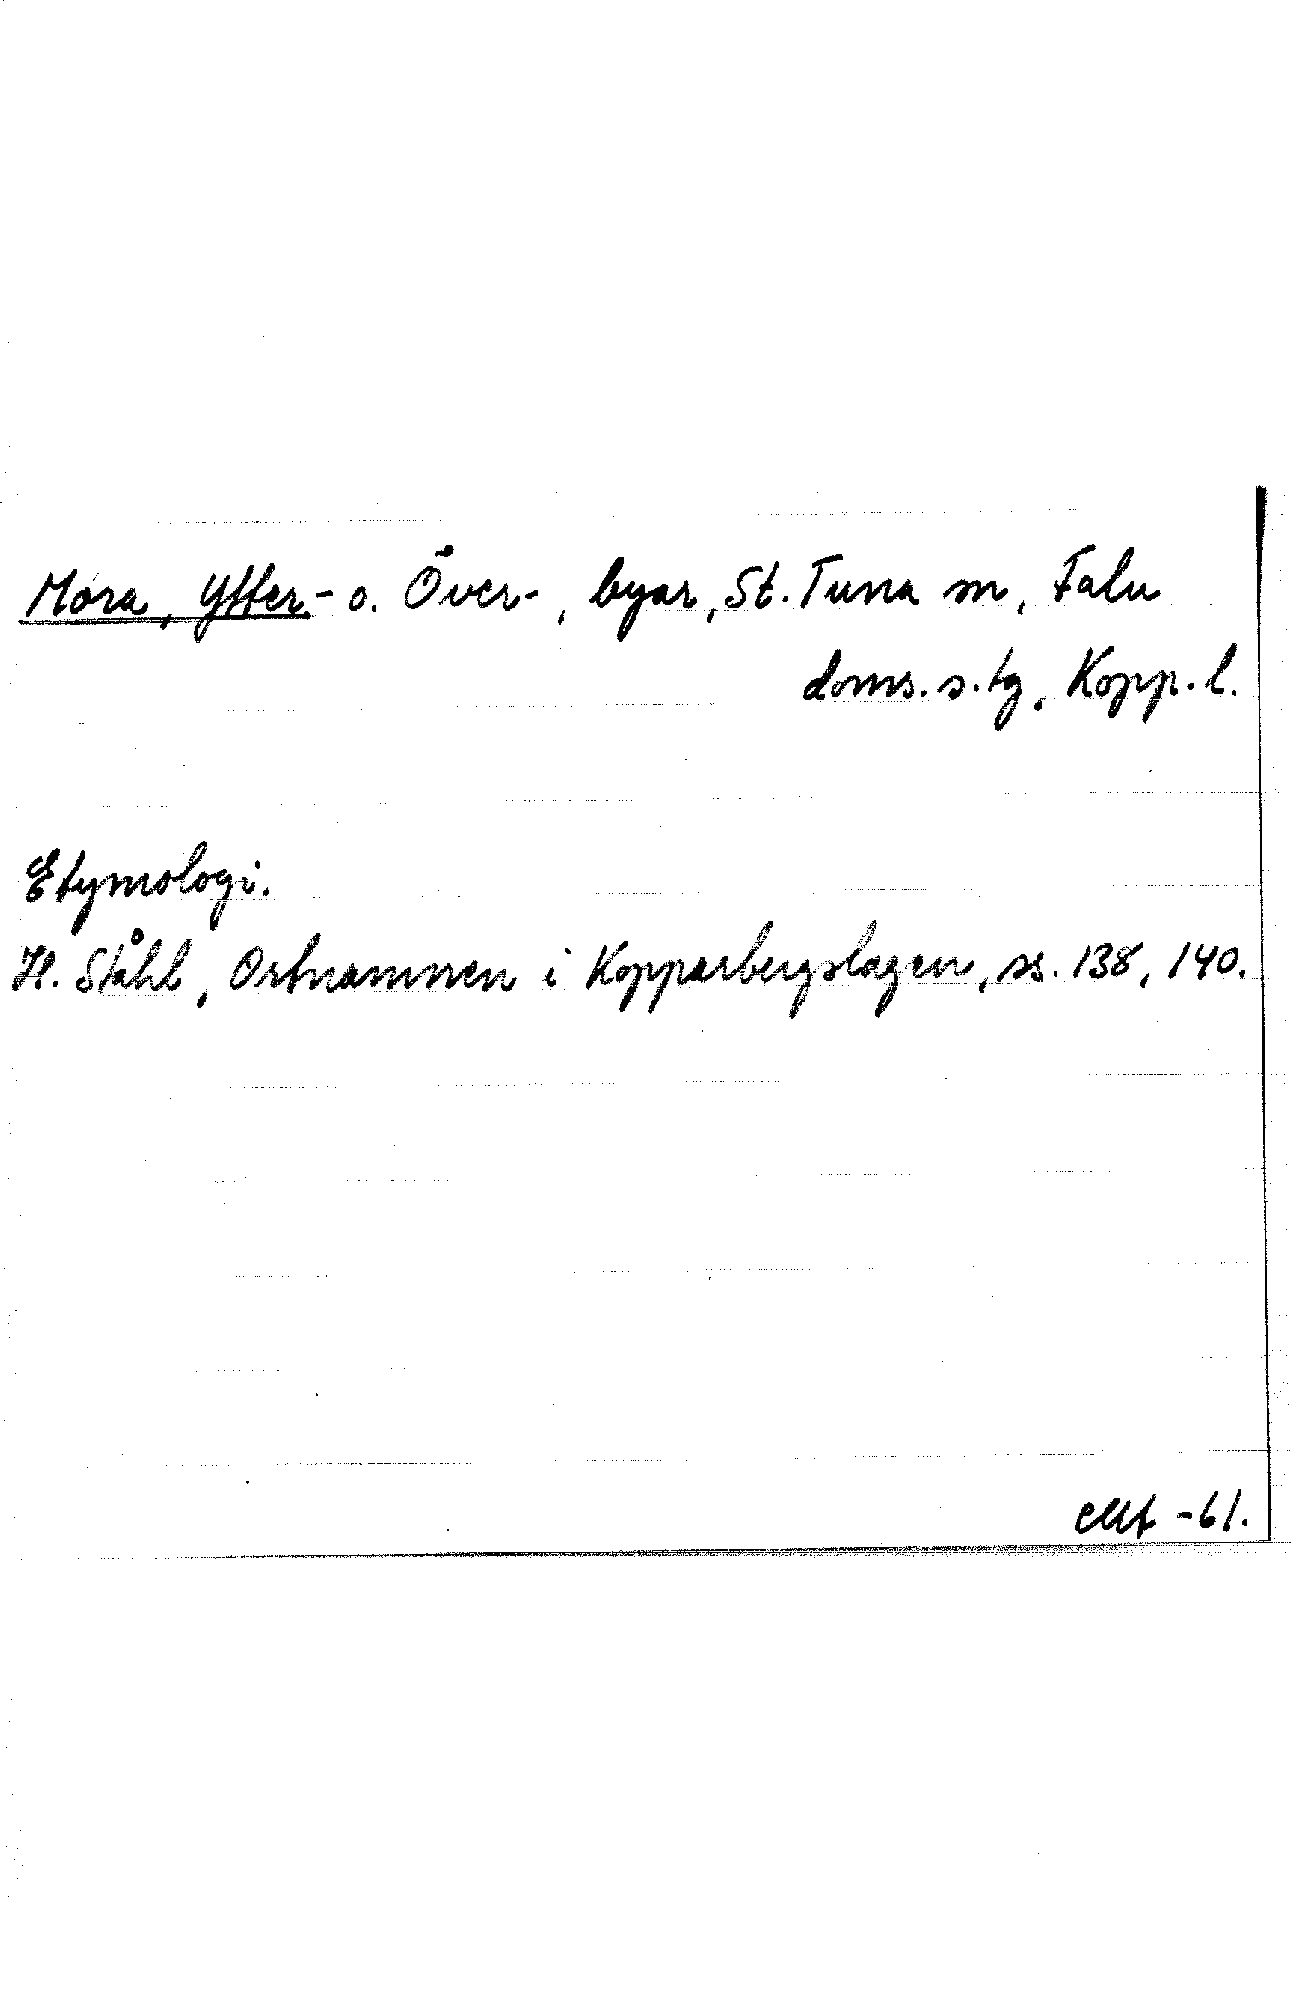 Mora, Ytter- o. Över-, byar, St. Tuna sn, Falu
doms. s. tg, Kopp. l.
Etymologi.
H. Ståhl, Ortnamnen i Kopparbergslagen, ss. 138, 140.
-61.